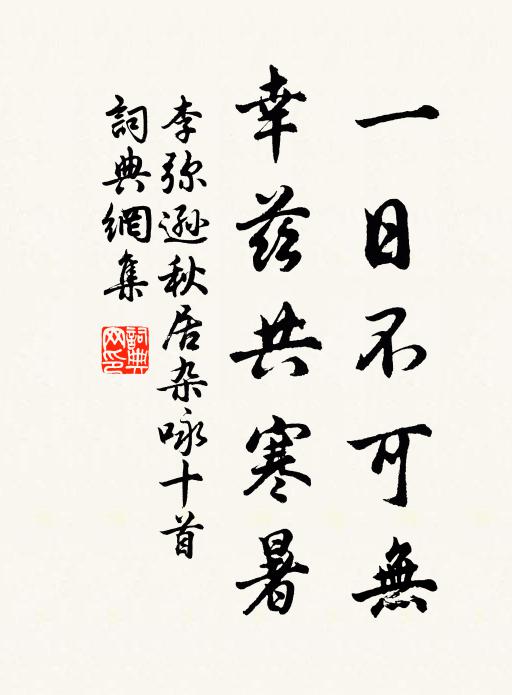 一日不可無
幸茲共寒暑
李弥遜秋居杂咏十首
詞典網集
詞典网印